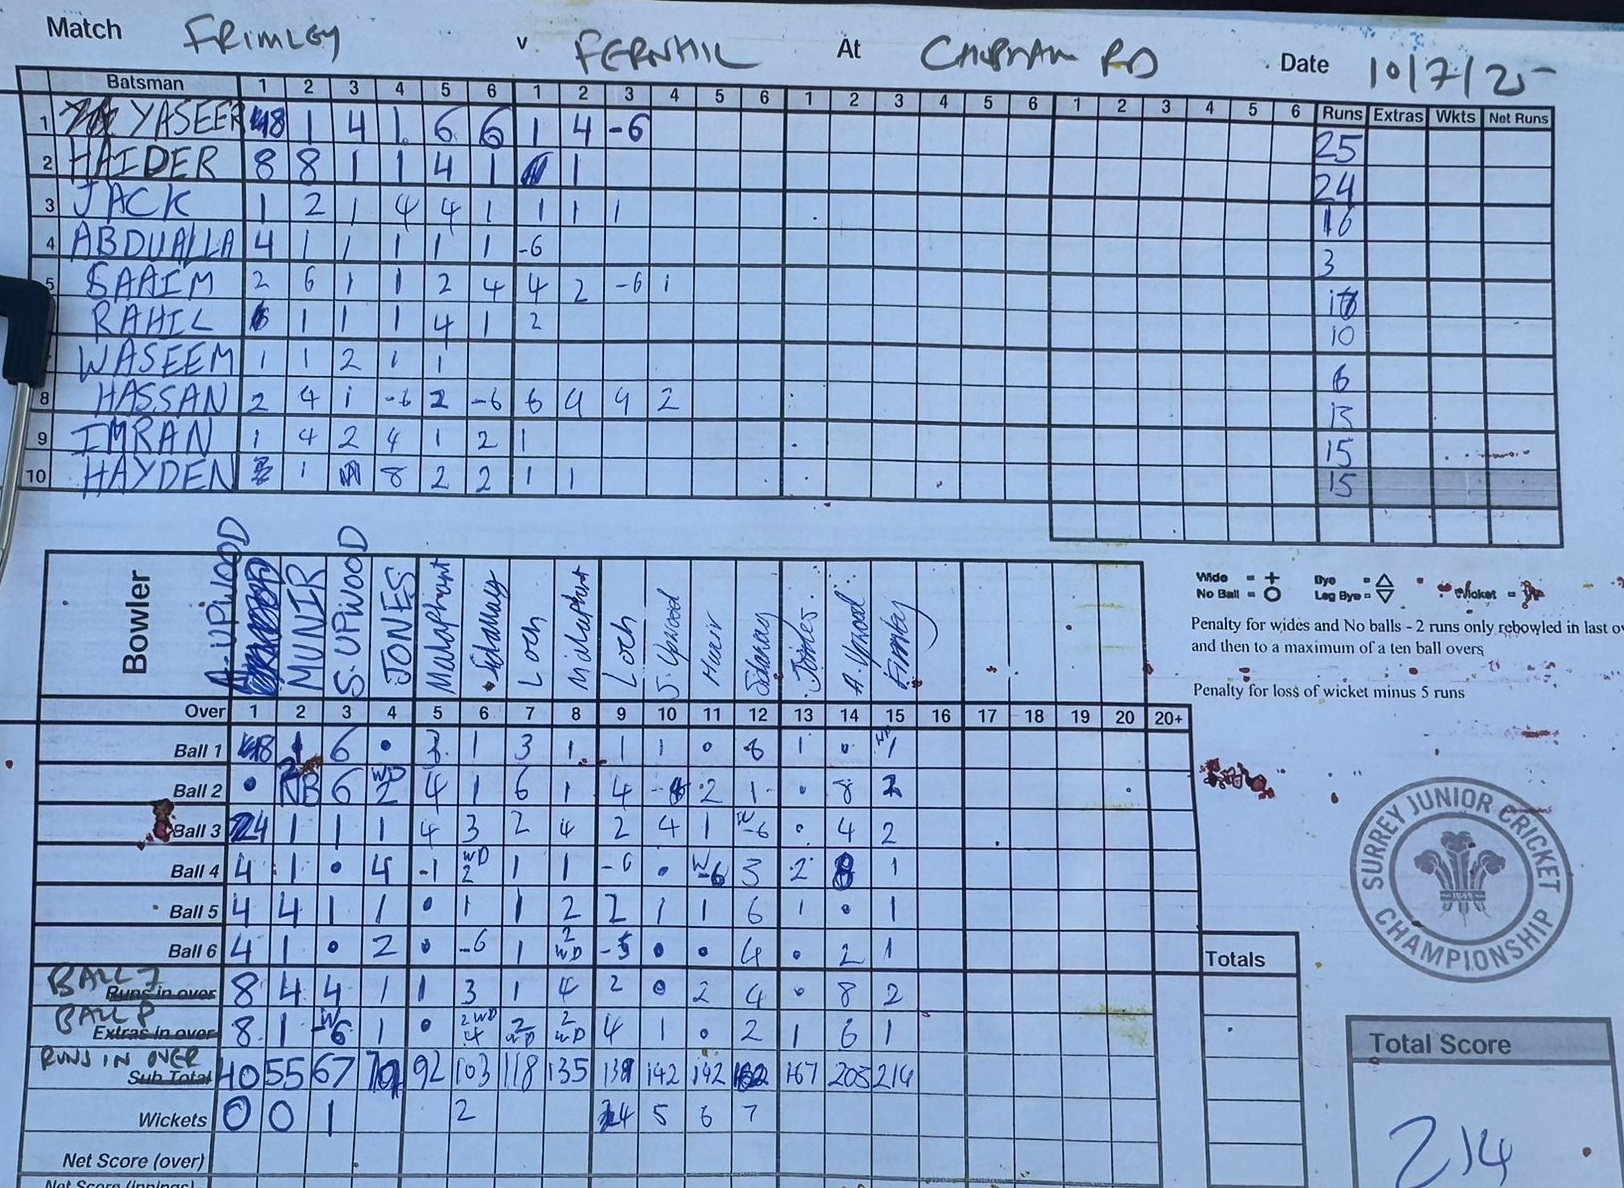 Match FRIMLEY v FERNHIL At Date 10/7/25
Batsman 1 2 3 4 5 6 1 2 3 4 5 6 1 2 3 4 5 6 1 2 3 4 5 6 Runs Extras Wkts Net Runs
1 YASEER 8 1 4 1 6 6 1 4 -6 25
2 HAIDER 8 8 1 1 4 1 1 24
3 JACK 1 2 1 4 4 1 1 1 1 16
4 ABDUALLA 4 1 1 1 1 1 -6 3
5 SAAIM 2 6 1 1 2 4 4 2 -6 1
RAHIL 1 1 1 4 1 2 10
WASEEM 1 1 2 1 1 6
8 HASSAN 2 4 1 -6 2 -6 6 4 4 2 13
9 IMRAN 1 4 2 4 1 2 1 15
10 HAYDEN 1 8 2 2 1 1 15
Bowler A. UPWOOD MUNIR S. UPWOOD JONES Loch Loch A. Upwood
Wide = + Bye = △
No Ball = O Leg Bye = ▽ Wicket =
Penalty for wides and No balls - 2 runs only rebowled in last ov
and then to a maximum of a ten ball overs
Penalty for loss of wicket minus 5 runs
Over 1 2 3 4 5 6 7 8 9 10 11 12 13 14 15 16 17 18 19 20 20+
Ball 1 8 6 • 3 1 3 1 1 1 0 8 1 0 1
Ball 2 • NB 6 WD 2 4 1 6 1 4 2 1 • 8 2
Ball 3 4 1 1 1 4 3 2 4 2 4 1 W -6 0 4 2
Ball 4 4 1 0 4 -1 WD 2 1 1 -6 0 W -6 3 2 8 1
Ball 5 4 4 1 1 0 1 1 2 2 1 1 6 1 0 1
Ball 6 4 1 0 2 0 -6 1 2 WD -5 0 0 4 0 2 1
BALL 7 Runs in over 8 4 4 1 1 3 1 4 2 0 2 4 0 8 2
BALL 8 Extras in over 8 1 W -6 1 0 2 WD 4 2 WD 2 WD 4 1 0 2 1 6 1
RUNS IN OVER Sub Total 40 55 67 92 103 118 135 139 142 142 162 167 205 214
Wickets 0 0 1 2 4 5 6 7
Net Score (over)
Net Score (innings)
Totals
SURREY JUNIOR CRICKET CHAMPIONSHIP
Total Score
214